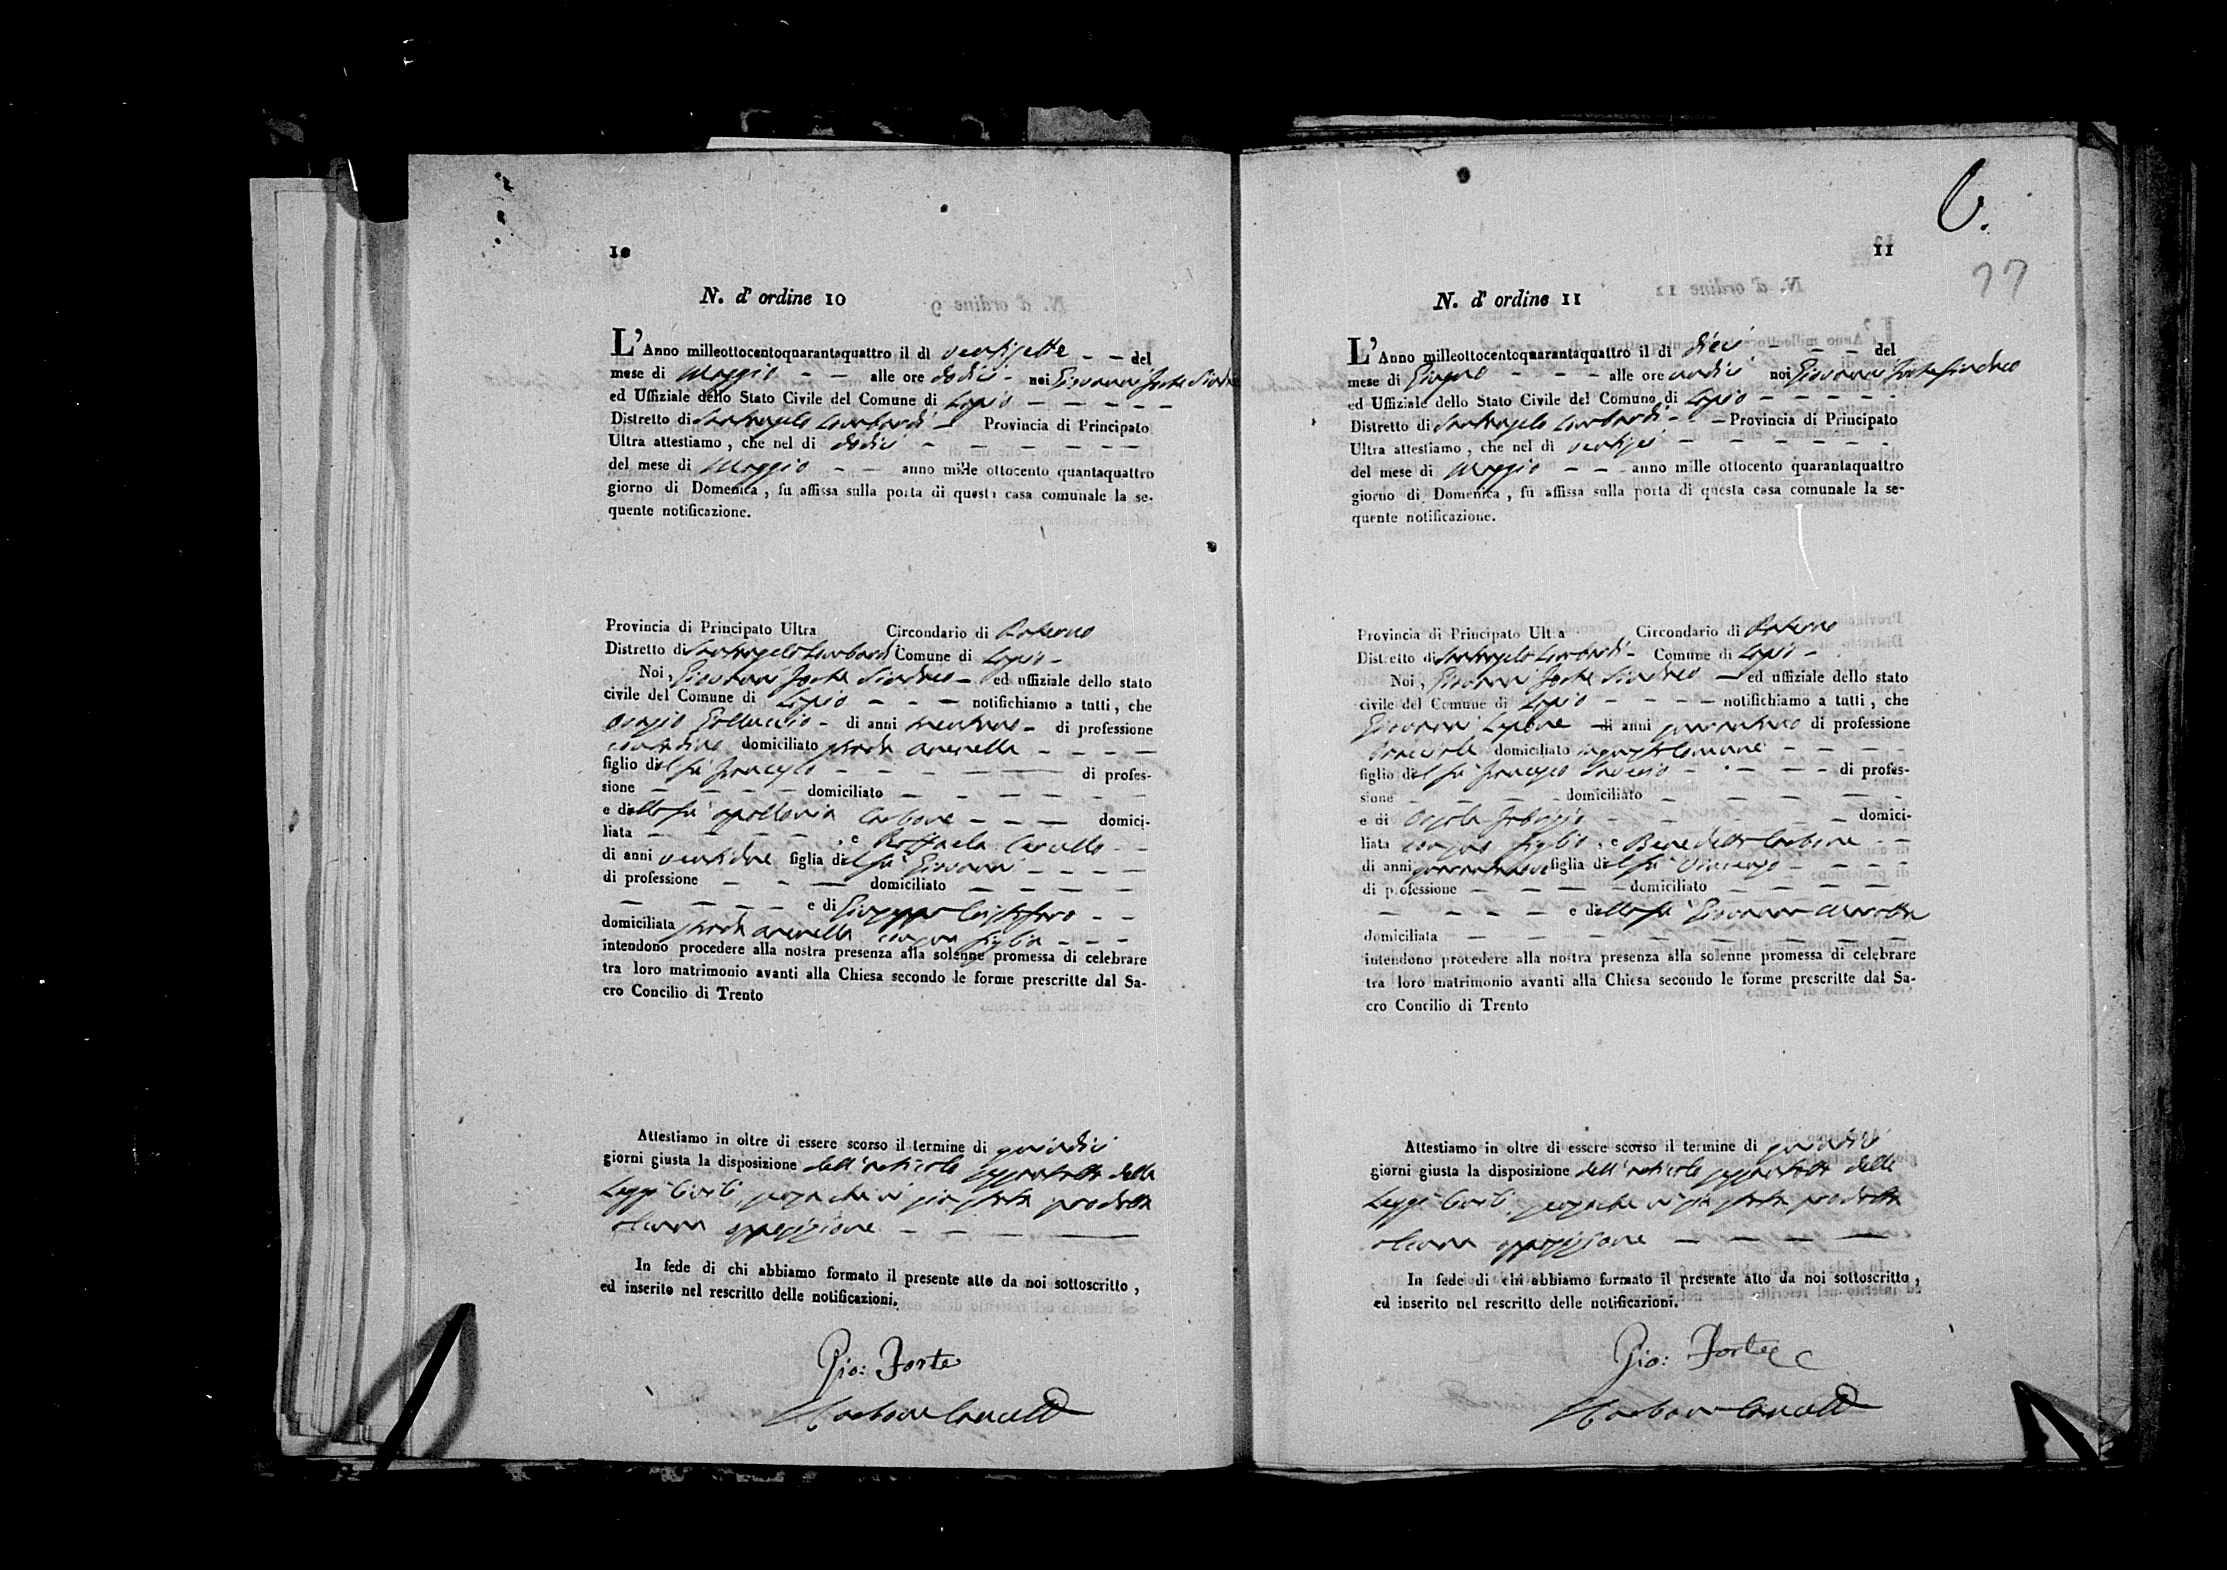 10
N. d' ordine 10
L'Anno milleottocentoquarantaquattro il dì ventisette — — del
mese di Maggio — — alle ore dodici - noi Giovanni Forte Sindaco
ed Uffiziale dello Stato Civile del Comune di Lapio — — — — —
Distretto di Santangelo Lombardi — Provincia di Principato
Ultra attestiamo, che nel dì dodici — — — — — —
del mese di Maggio — — anno mille ottocento quantaquattro
giorno di Domenica, fu affissa sulla porta di questa casa comunale la se-
quente notificazione.
Provincia di Principato Ultra Circondario di Paterno
Distretto di Santangelo Lombardi Comune di Lapio -
Noi, Giovanni Forte Sindaco — ed uffiziale dello stato
civile del Comune di Lapio — — — notifichiamo a tutti, che
- di anni trentuno - di professione
contadino domiciliato strada arenella — — — —
figlio del fu Francesco — — — — — di profes-
sione — — — — domiciliato — — — — — —
e della fu Apollonia Carbone — — — domici-
liata — — — — , e Raffaela — —
di anni ventidue figlia del fu Giovanni — — — —
di professione — — — domiciliato — — — —
— — — — e di Giuseppa Cristofaro — —
domiciliata strada arenella con sua figlia — — —
intendono procedere alla nostra presenza alla solenne promessa di celebrare
tra loro matrimonio avanti alla Chiesa secondo le forme prescritte dal Sa-
cro Concilio di Trento
Attestiamo in oltre di essere scorso il termine di quindici
giorni giusta la disposizione dell'articolo sessantotto delle
Leggi Civili, senza che vi sia stata prodotta
alcuna opposizione — — — —
In fede di chi abbiamo formato il presente atto da noi sottoscritto,
ed inserito nel rescritto delle notificazioni.
Gio: Forte
Carbone
6.
11
77
N. d' ordine 11
L'Anno milleottocentoquarantaquattro il dì dieci — — — del
mese di Giugno — — — alle ore undici noi Giovanni Forte Sindaco
ed Uffiziale dello Stato Civile del Comune di Lapio — — — — —
Distretto di Santangelo Lombardi - — Provincia di Principato
Ultra attestiamo, che nel dì ventisei — — — — — —
del mese di Maggio — — - anno mille ottocento quarantaquattro
giorno di Domenica, fu affissa sulla porta di questa casa comunale la se-
quente notificazione.
Provincia di Principato Ultra Circondario di Paterno
Distretto di Santangelo Lombardi - Comune di Lapio - .
Noi, Giovanni Forte Sindaco — ed uffiziale dello stato
civile del Comune di Lapio — — — — notifichiamo a tutti, che
Giovanni Lepore di anni di professione
bracciale domiciliato in questo Comune — — — —
figlio del fu Francesco Saverio — — — — di profes-
sione — — — — domiciliato — — — — —
e di Orsola Fabrizio — — — — — domici-
liata con suo figlio , e Benedetta Carbone — —
di anni figlia del fu Vincenzo — — — —
di professione — — — — domiciliato — — — —
— — — — e della fu Giovanna
domiciliata — — — — — — — — —
intendono procedere alla nostra presenza alla solenne promessa di celebrare
tra loro matrimonio avanti alla Chiesa secondo le forme prescritte dal Sa-
cro Concilio di Trento
Attestiamo in oltre di essere scorso il termine di quindici
giorni giusta la disposizione dell'articolo sessantotto delle
Leggi Civili, senza che vi sia stata prodotta
alcuna opposizione — — — —
In fede di chi abbiamo formato il presente atto da noi sottoscritto,
ed inserito nel rescritto delle notificazioni.
Gio: Forte
Carbone